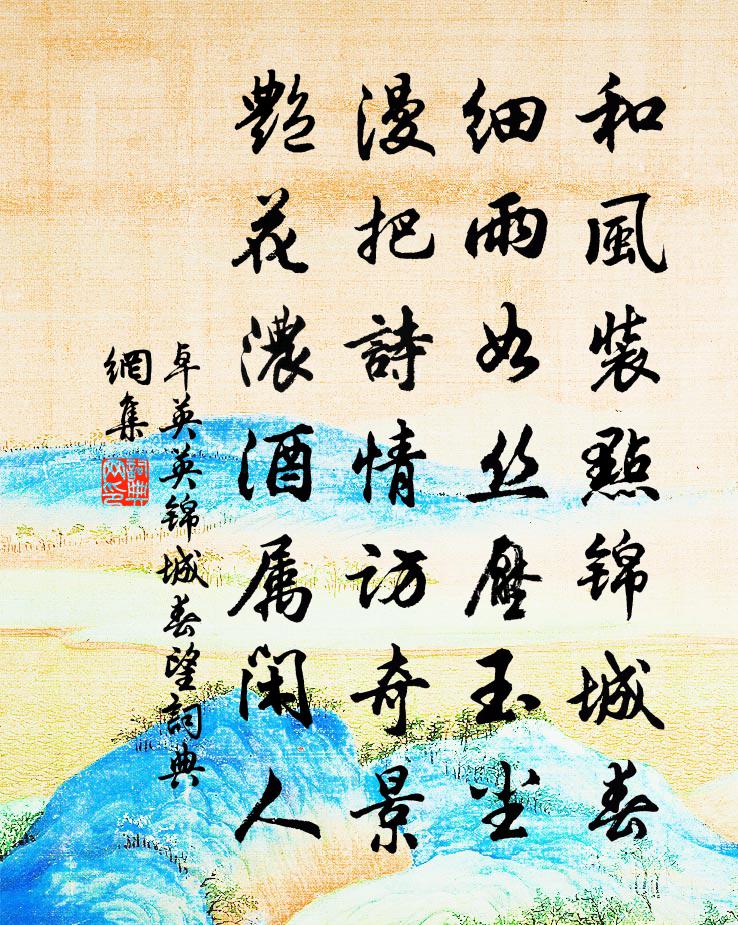 和風裝點錦城春
細雨如丝壓玉尘
漫把詩情訪奇景
艷花濃酒属闲人
卓英英锦城春望詞典
網集
詞典